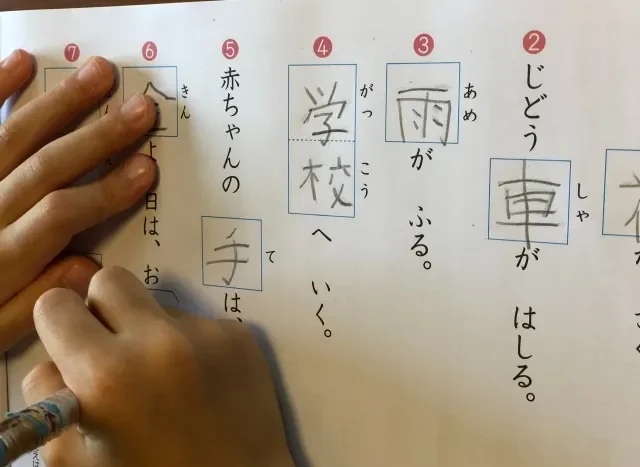 ②じどう車がはしる。
しゃ
③雨がふる。
あめ
④学校へいく。
がっこう
⑤赤ちゃんの手は、
て
⑥金よ日は、お
きん
⑦